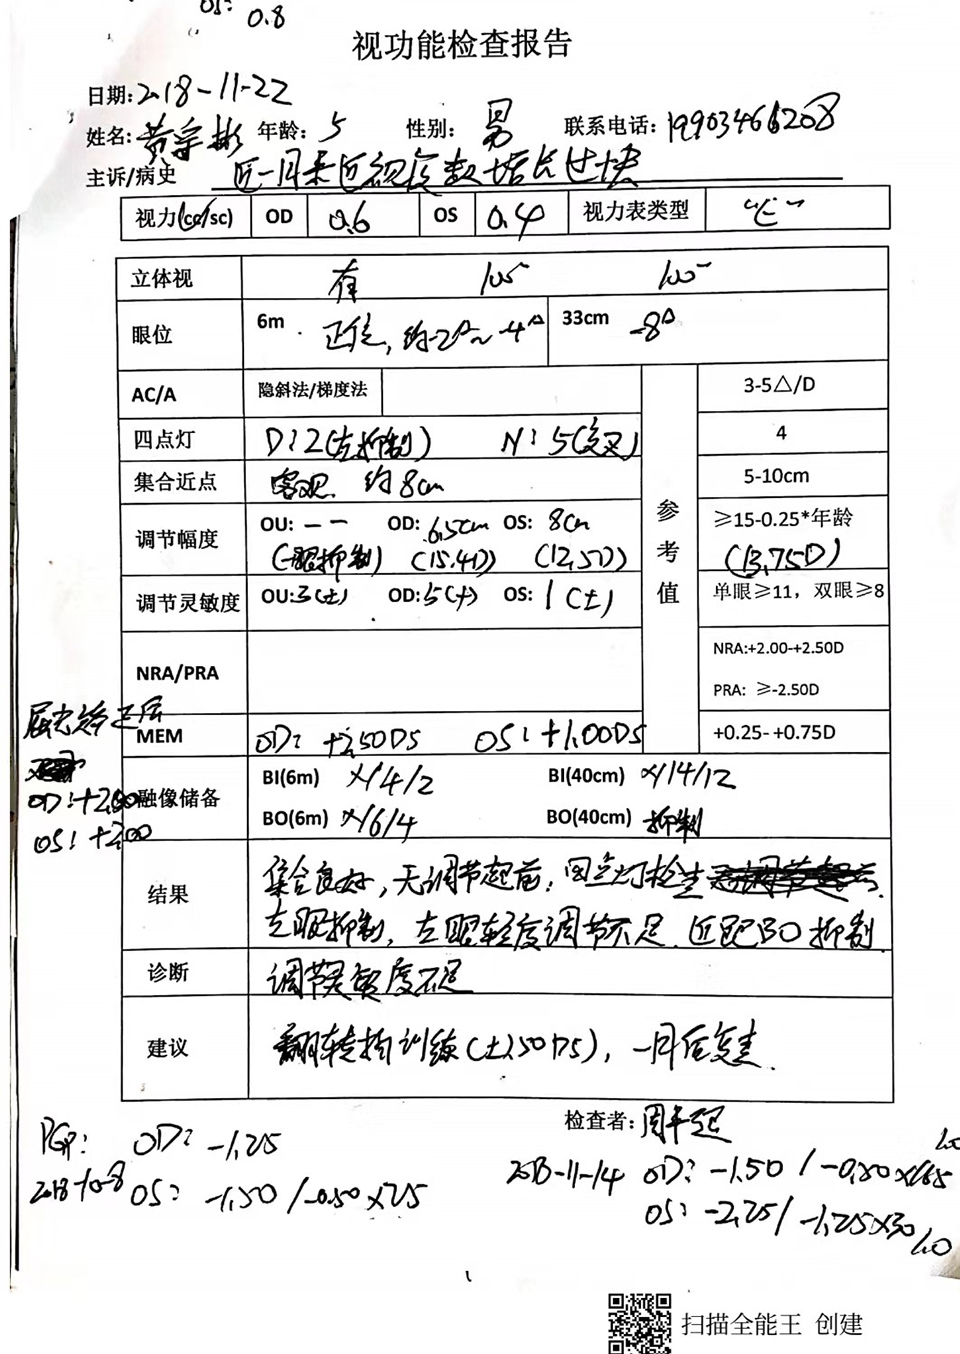 OS: 0.8
视功能检查报告
日期: 2018-11-22
姓名: 黄宇彬 年龄: 5 性别: 男 联系电话: 19903466208
主诉/病史 近一月来近视度数增长过快
视力(cc/sc) OD 0.6 OS 0.4 视力表类型 "E"
立体视 有 100"
眼位 6m 正位, 约-2△~-4△ 33cm -8△
AC/A 隐斜法/梯度法 3-5△/D
四点灯 D:2(左抑制) N:5(交叉) 4
集合近点 客观 约8cm 5-10cm
参考值
调节幅度 OU: -- OD: 6.5cm OS: 8cm ≥15-0.25*年龄
(一眼抑制) (15.4D) (12.5D) (13.75D)
调节灵敏度 OU:3(±) OD:5(+) OS: 1(±) 单眼≥11, 双眼≥8
NRA/PRA NRA:+2.00-+2.50D
PRA: ≥-2.50D
屈光矫正后
MEM OD: +2.50DS OS: +1.00DS +0.25-+0.75D
OD:+2.00
OS:+2.00
融像储备 BI(6m) ×/4/2 BI(40cm) ×/14/12
BO(6m) ×/6/4 BO(40cm) 抑制
结果 集合良好, 无调节超前, 四点灯检查
左眼抑制, 左眼轻度调节不足. 近距BO抑制.
诊断 调节灵敏度不足
建议 翻转拍训练(±1.50DS), 一月后复查.
检查者:
PGP: OD: -1.25
2018-10-8 OS: -1.50/-0.50×25
2018-11-14 OD: -1.50/-0.50×165 1.0
OS: -2.25/-1.25×30 1.0
扫描全能王 创建